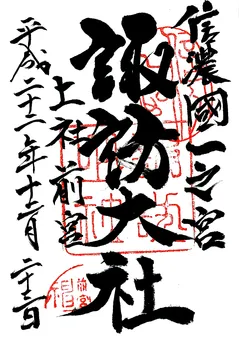 信濃國一之宮
諏訪大社
上社前宮
平成二十二年十二月二十三日